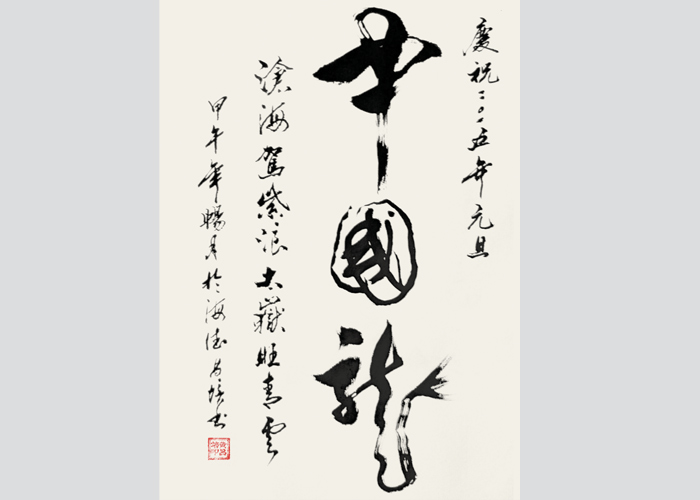 慶祝二〇一五年元旦
中國龍
滄海駕紫浪大嶽旺青雲
甲午年暢月於海德尚培书